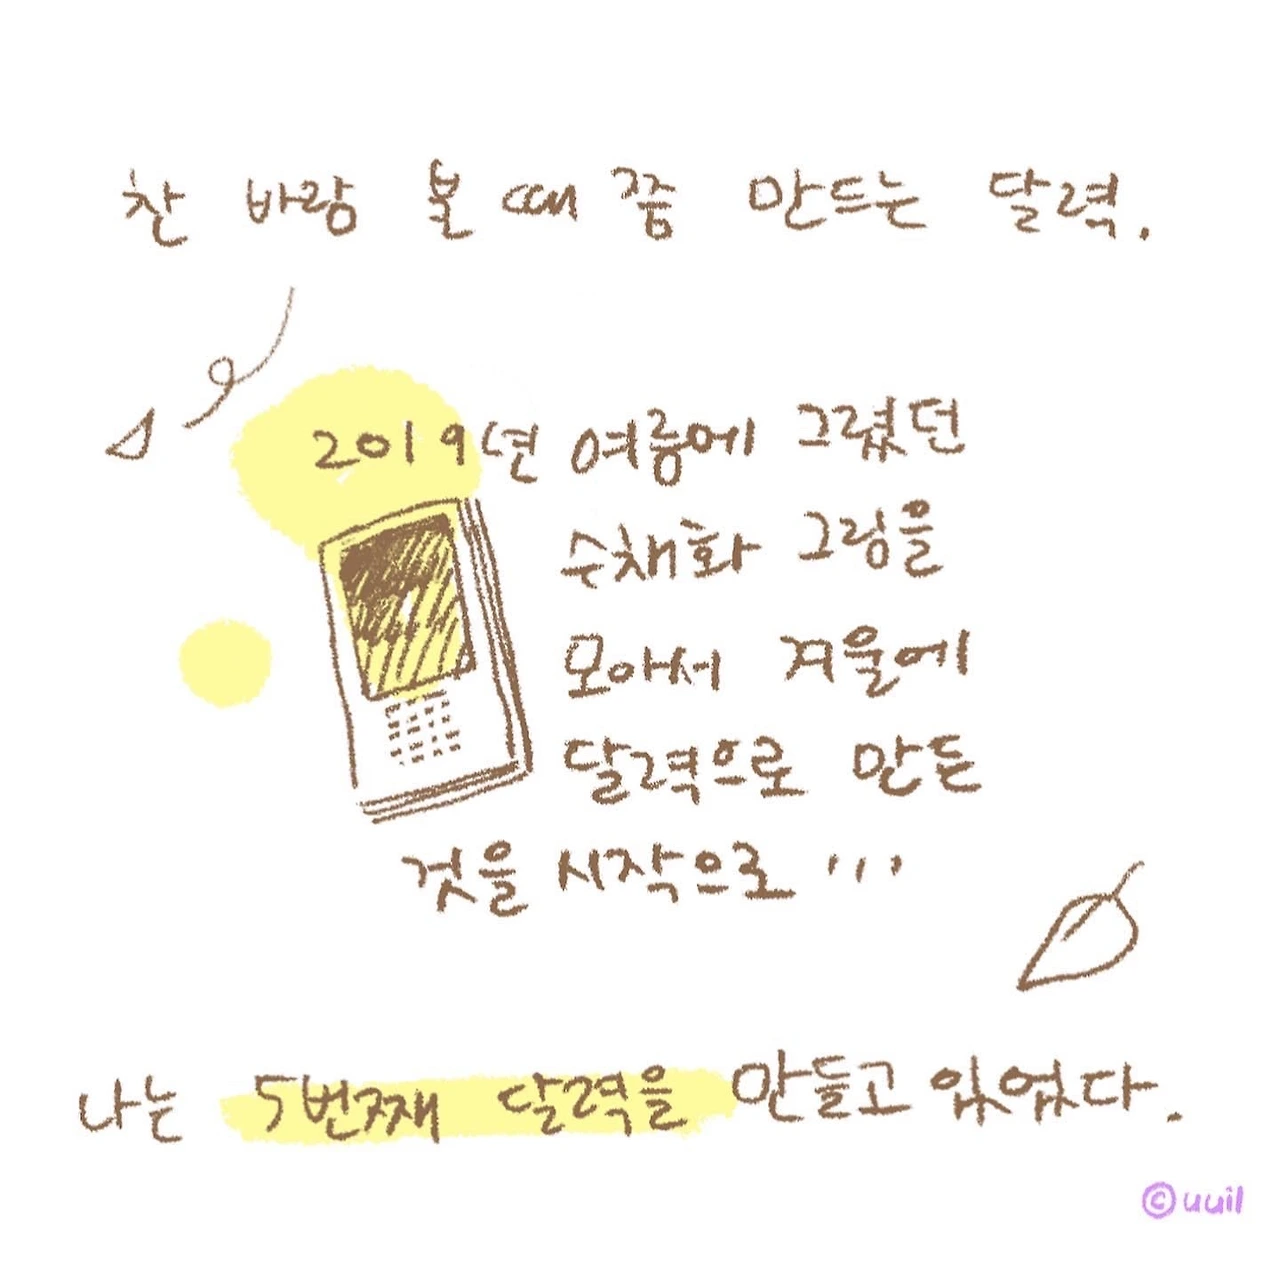 찬 바람 불 때 쯤 만드는 달력.
2019년 여름에 그렸던
수채화 그림을
모아서 겨울에
달력으로 만든
것을 시작으로 ...
나는 5번째 달력을 만들고 있었다.
©uuil